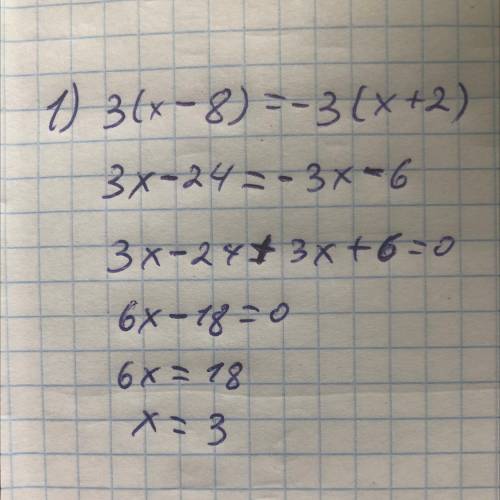 1) 3(x-8)=-3(x+2)
3x-24=-3x-6
3x-24+3x+6=0
6x-18=0
6x=18
x=3